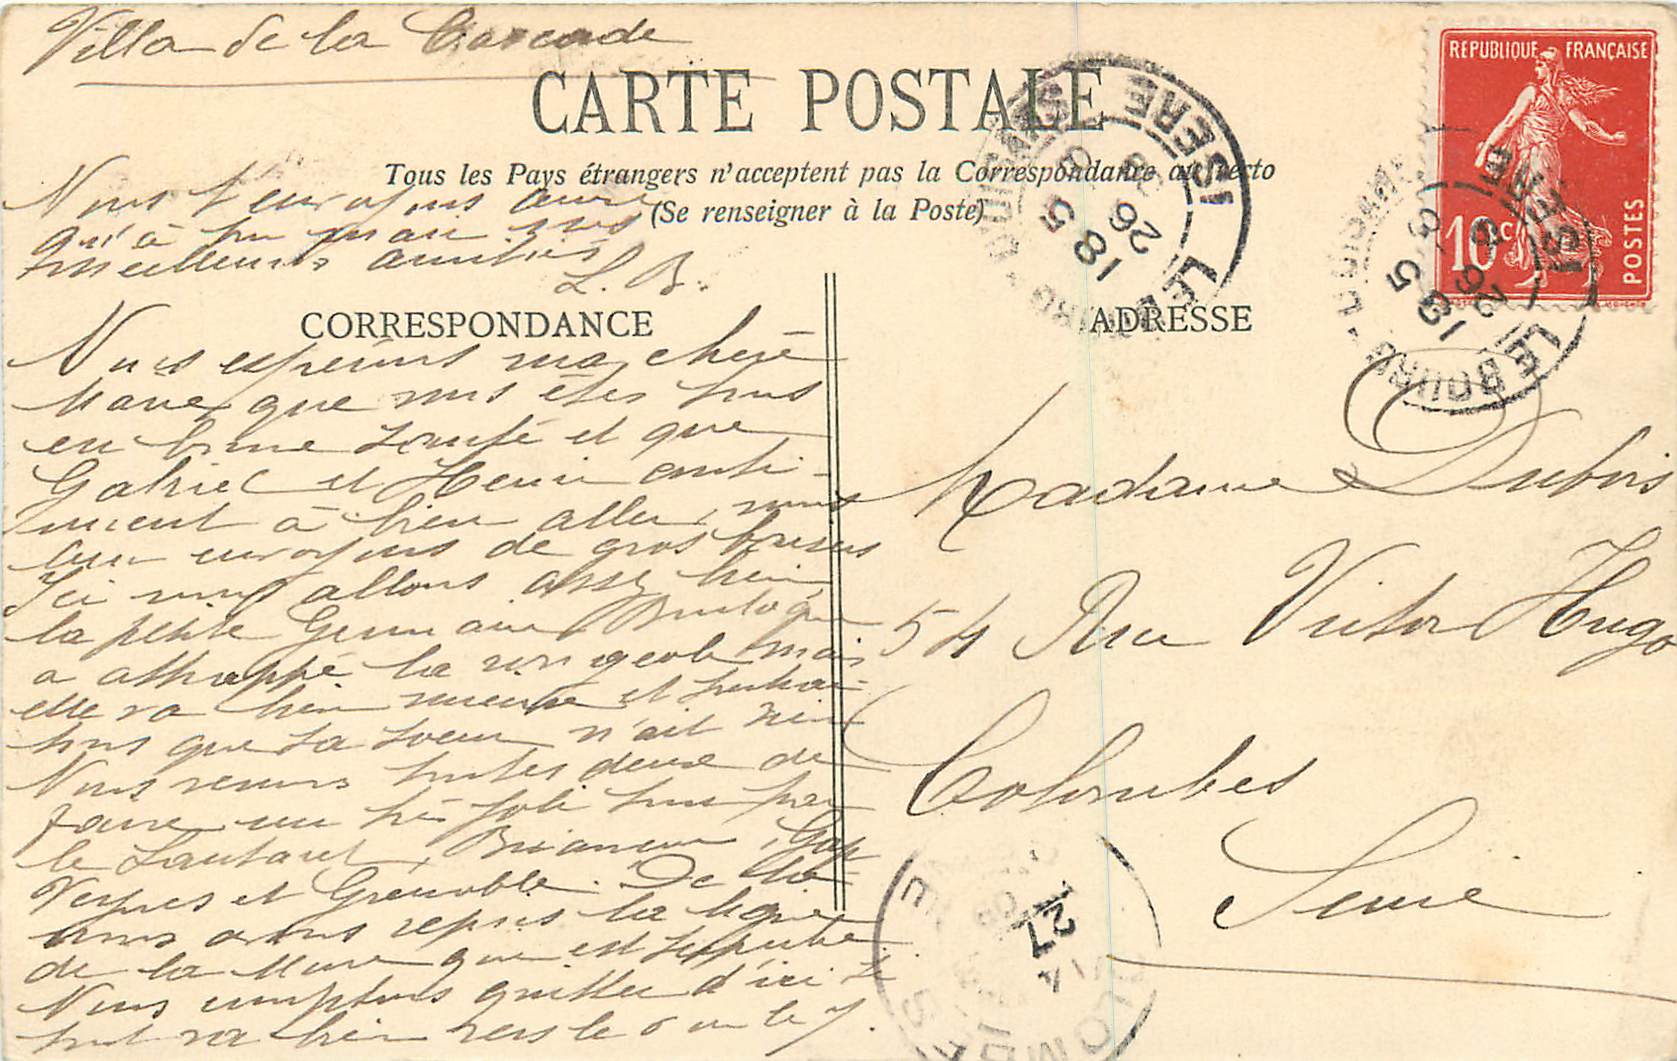 Villa de la Cascade
CARTE POSTALE
Tous les Pays étrangers n'acceptent pas la Correspondance au recto
(Se renseigner à la Poste)
Nous t'envoyons ainsi
qu'à ton mari nos
meilleures amitiés
L. B.
CORRESPONDANCE
Nous espérons ma chère
Marie que vous êtes tous
en bonne santé et que
Gabriel et Henri conti-
nuent à bien aller, nous
leur envoyons de gros baisers
Ici nous allons assez bien,
la petite Germaine
a attrappé la rougeole mais
elle va bien mieux et souhai-
tons que sa soeur n'ait rien
Nous venons toutes deux de
faire un très joli tour par
le Lautaret, Briançon, Gap
Veynes et Grenoble. De là
nous avons repris la ligne
de la Mure qui est superbe.
Nous comptons quitter d'ici si
tout va bien vers le 6 ou le 7.
ADRESSE
Madame Dubois
54 Rue Victor Hugo
Colombes
Seine
REPUBLIQUE FRANÇAISE
10c
POSTES
LE BOURG-D'OISANS
ISERE
18 5
26 8
08
LE BOURG-D'OISANS
ISERE
18 5
26 8
08
COLOMBES
SEINE
27
08